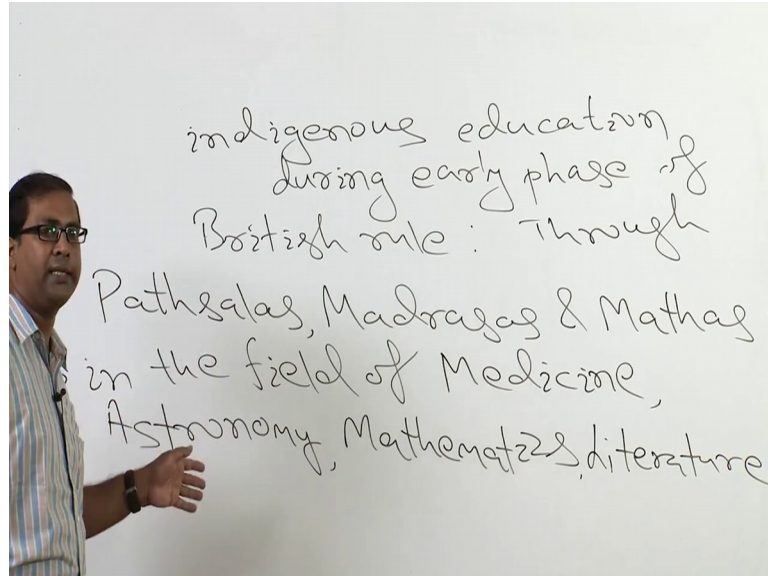 indigenous education
during early phase of
British rule : Through
Pathsalas, Madrasas & Mathas
in the field of Medicine,
Astronomy, Mathematics, Literature